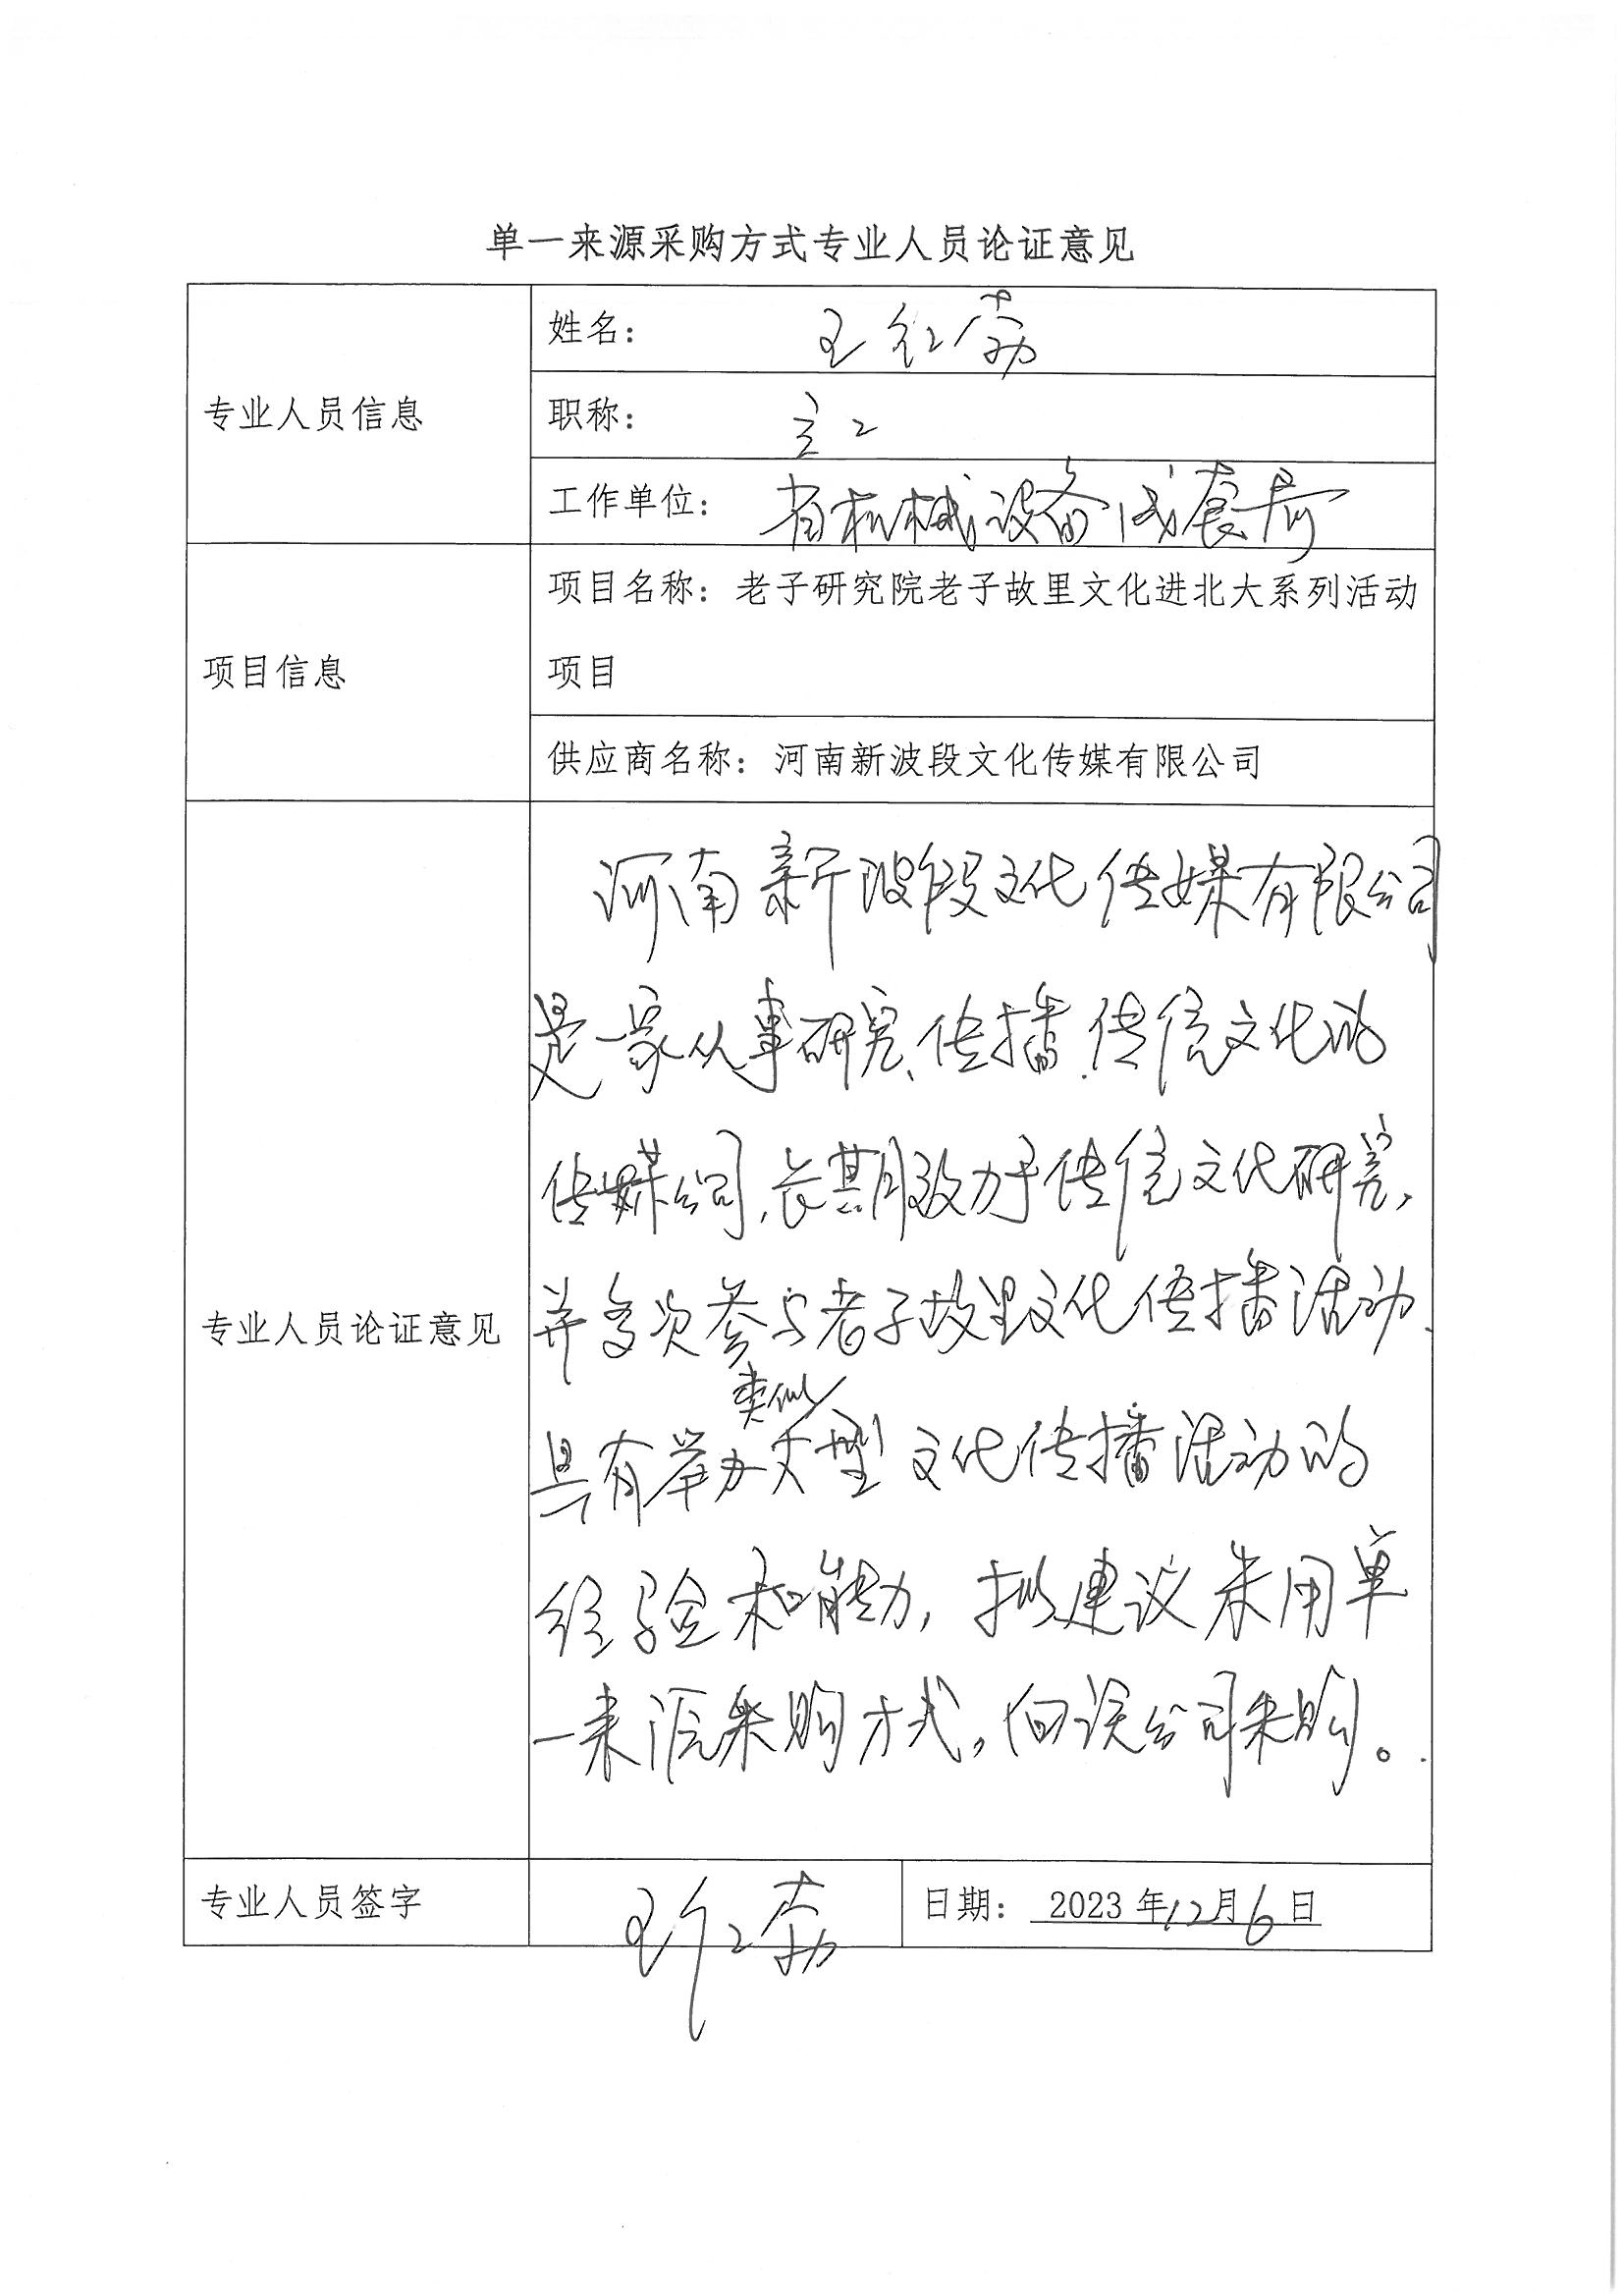 单一来源采购方式专业人员论证意见
专业人员信息
姓名：王红荔
职称：高工
工作单位：省机械设备成套局
项目信息
项目名称：老子研究院老子故里文化进北大系列活动
项目
供应商名称：河南新波段文化传媒有限公司
专业人员论证意见
河南新波段文化传媒有限公司
是一家从事研究、传播、传统文化的
传媒公司，长期致力于传统文化研究，
并多次参与老子故里文化传播活动、
类似
具有举办大型文化传播活动的
经验和能力，拟建议采用单
一来源采购方式，向该公司采购。
专业人员签字
王红荔
日期：2023年12月6日